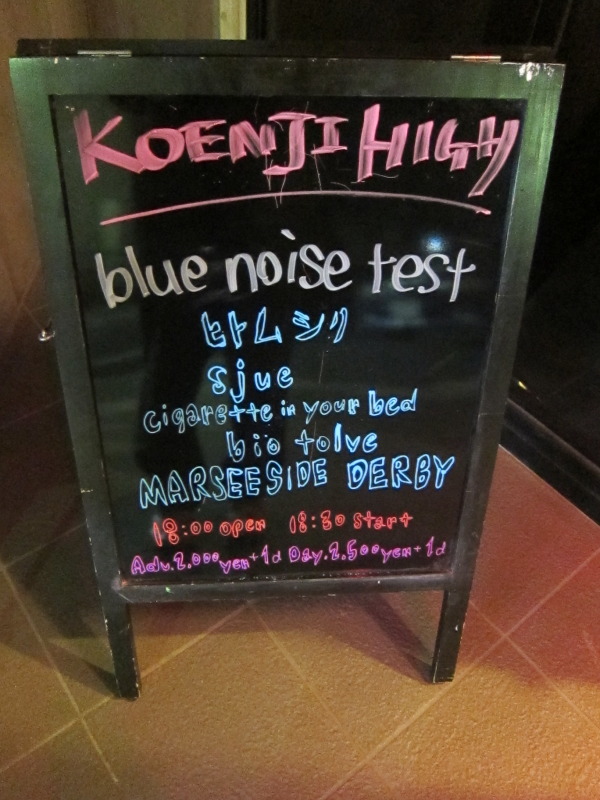 KOENJI HIGH
blue noise test
ヒトムシリ
sjue
cigarette in your bed
bio tolve
MARSEESIDE DERBY
18:00 open 18:30 start
Adv.2.000yen+1d Day.2.500yen+1d